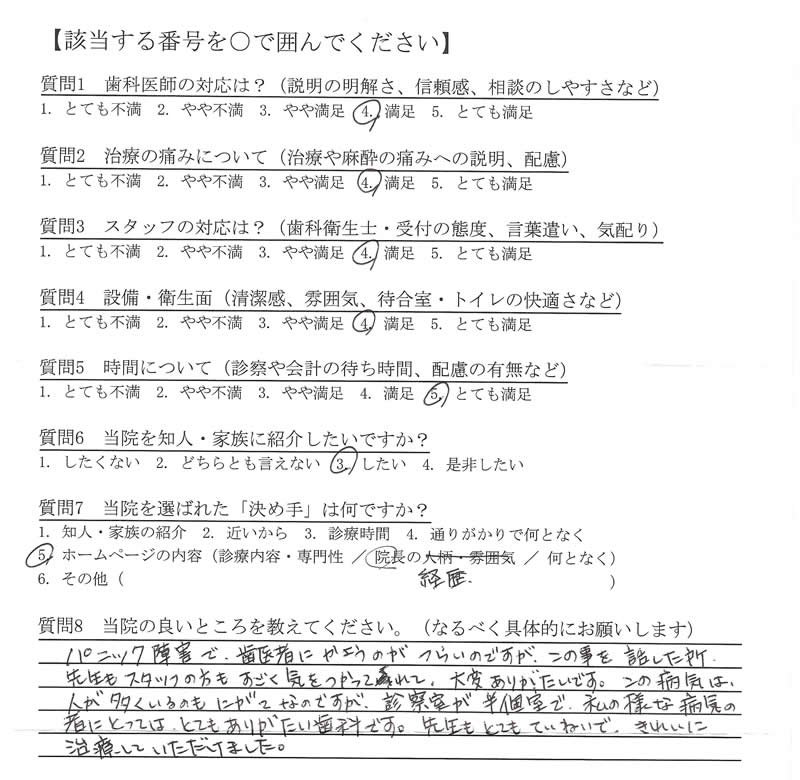 【該当する番号を○で囲んでください】
質問1 歯科医師の対応は？（説明の明解さ、信頼感、相談のしやすさなど）
1. とても不満 2. やや不満 3. やや満足 4. 満足 5. とても満足
質問2 治療の痛みについて（治療や麻酔の痛みへの説明、配慮）
1. とても不満 2. やや不満 3. やや満足 4. 満足 5. とても満足
質問3 スタッフの対応は？（歯科衛生士・受付の態度、言葉遣い、気配り）
1. とても不満 2. やや不満 3. やや満足 4. 満足 5. とても満足
質問4 設備・衛生面（清潔感、雰囲気、待合室・トイレの快適さなど）
1. とても不満 2. やや不満 3. やや満足 4. 満足 5. とても満足
質問5 時間について（診察や会計の待ち時間、配慮の有無など）
1. とても不満 2. やや不満 3. やや満足 4. 満足 5. とても満足
質問6 当院を知人・家族に紹介したいですか？
1. したくない 2. どちらとも言えない 3. したい 4. 是非したい
質問7 当院を選ばれた「決め手」は何ですか？
1. 知人・家族の紹介 2. 近いから 3. 診療時間 4. 通りがかりで何となく
5. ホームページの内容（診療内容・専門性 ／ 院長の人柄・雰囲気 ／ 何となく）
経歴.
6. その他（ ）
質問8 当院の良いところを教えてください。（なるべく具体的にお願いします）
パニック障害で、歯医者にかようのが つらいのですが、この事を 話した所.
先生もスタッフの方も すごく 気をつかって くれて、大変ありがたいです。この病気は、
人が多くいるのもにがてなのですが、診察室が半個室で、私の様な病気の
者にとっては、とてもありがたい歯科です。先生もとてもていねいで、きれいに
治療していただけました。